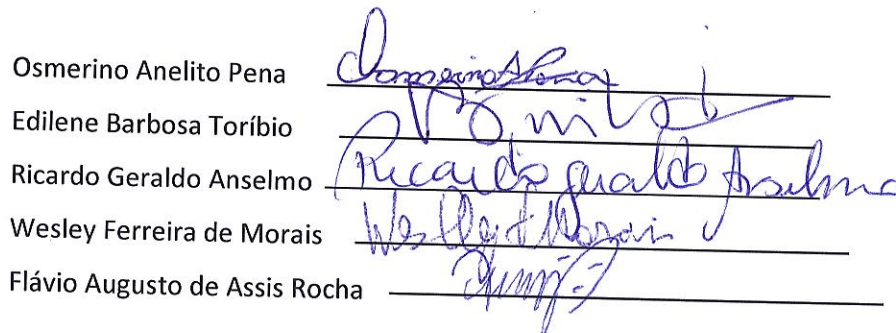 Osmerino Anelito Pena Osmerino A Pena
Edilene Barbosa Toríbio
Ricardo Geraldo Anselmo Ricardo Geraldo Anselmo
Wesley Ferreira de Morais Weslley F Morais
Flávio Augusto de Assis Rocha